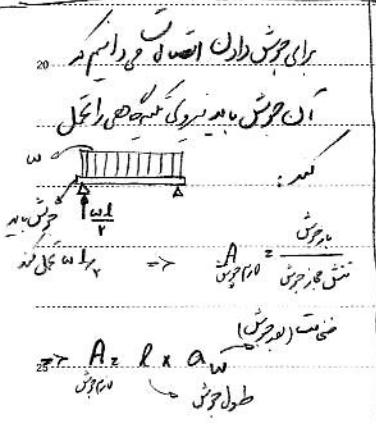 برای جوش دادن اتصالات می دانیم که
20
آن جوش باید نیروی تکیه گاهی را تحمل
کند :
ω
ωl/۲
جوش باید
ωl/۲ تحمل کند
=> A لازم جوش = بار جوش / تنش مجاز جوش
ضخامت (بعد جوش)
25 => A لازم جوش = l × aω
طول جوش